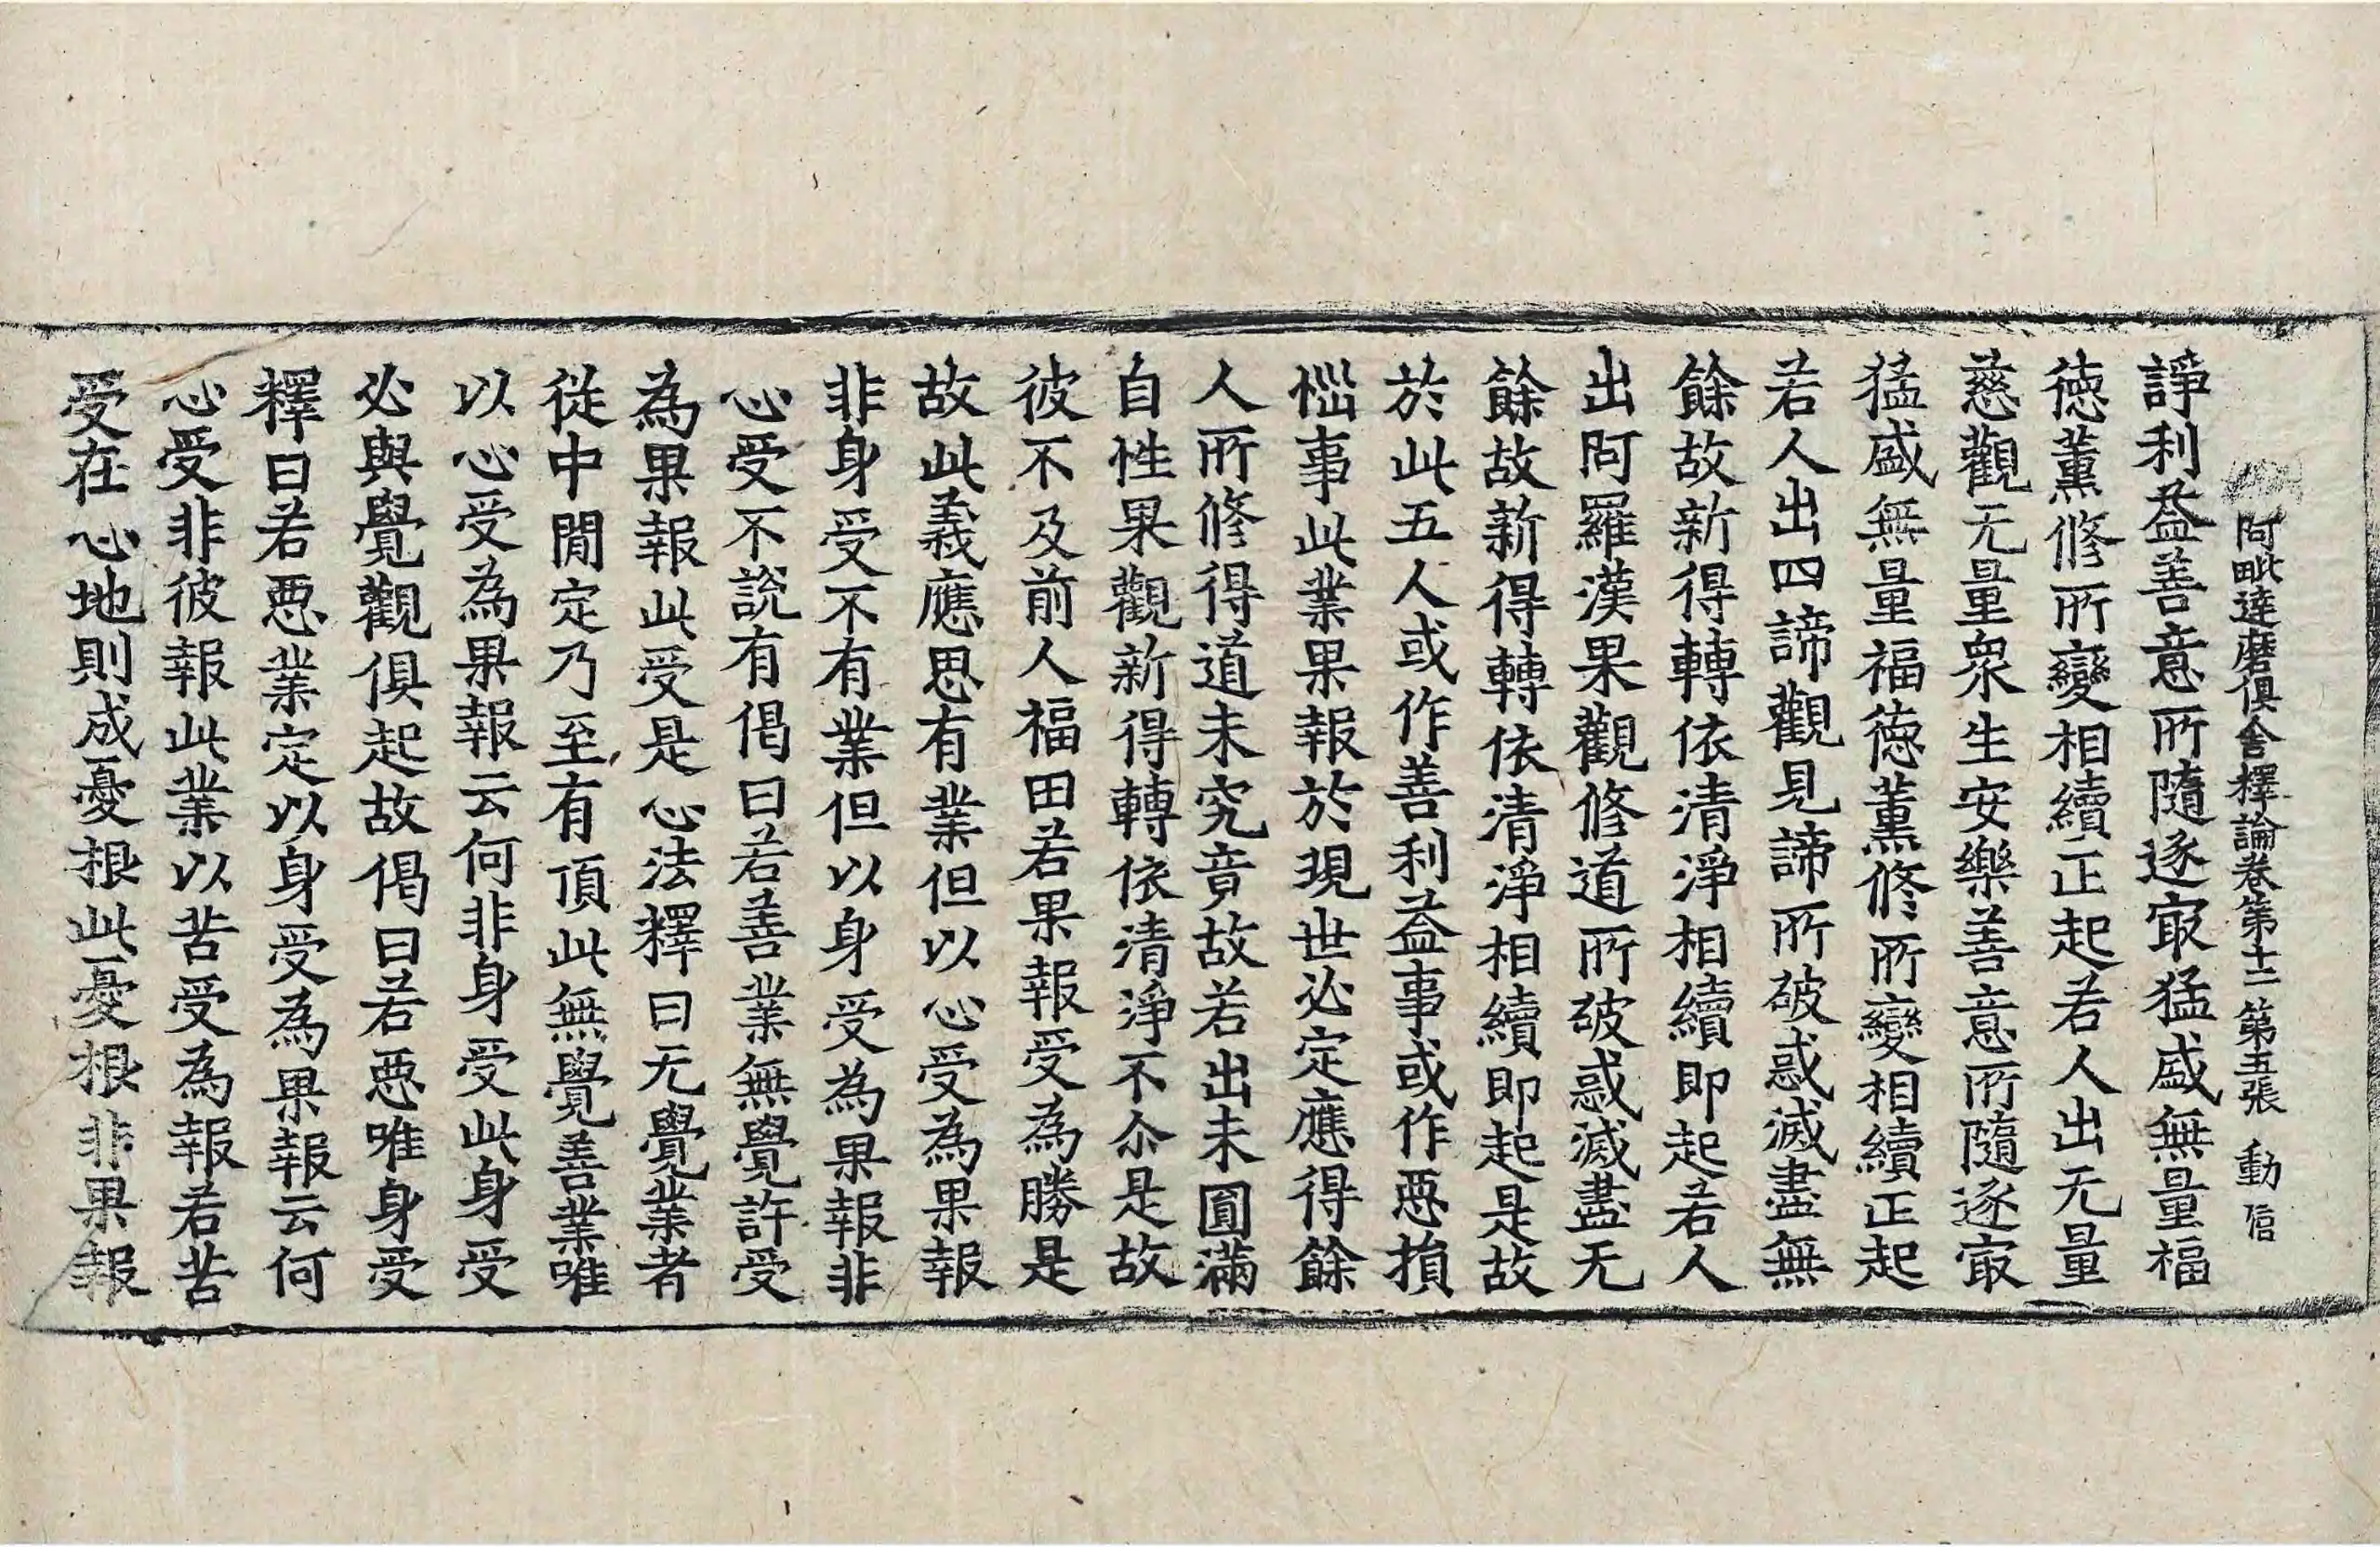 阿毗達磨俱舍釋論卷第十二 第五張 動 信
諍利益善意所隨逐㝡猛盛無量福
德薰修所變相續正起若人出无量
慈觀无量衆生安樂善意所隨逐㝡
猛盛無量福德薰修所變相續正起
若人出四諦觀見諦所破惑滅盡無
餘故新得轉依清淨相續即起若人
出阿羅漢果觀修道所破惑滅盡无
餘故新得轉依清淨相續即起是故
於此五人或作善利益事或作惡損
惱事此業果報於現世必定應得餘
人所修得道未究竟故若出未圓滿
自性果觀新得轉依清淨不尒是故
彼不及前人福田若果報受為勝是
故此義應思有業但以心受為果報
非身受不有業但以身受為果報非
心受不說有偈曰若善業無覺許受
為果報此受是心法釋曰无覺業者
從中閒定乃至有頂此無覺善業唯
以心受為果報云何非身受此身受
必與覺觀俱起故偈曰若惡唯身受
釋曰若惡業定以身受為果報云何
心受非彼報此業以苦受為報若苦
受在心地則成憂根此憂根非果報